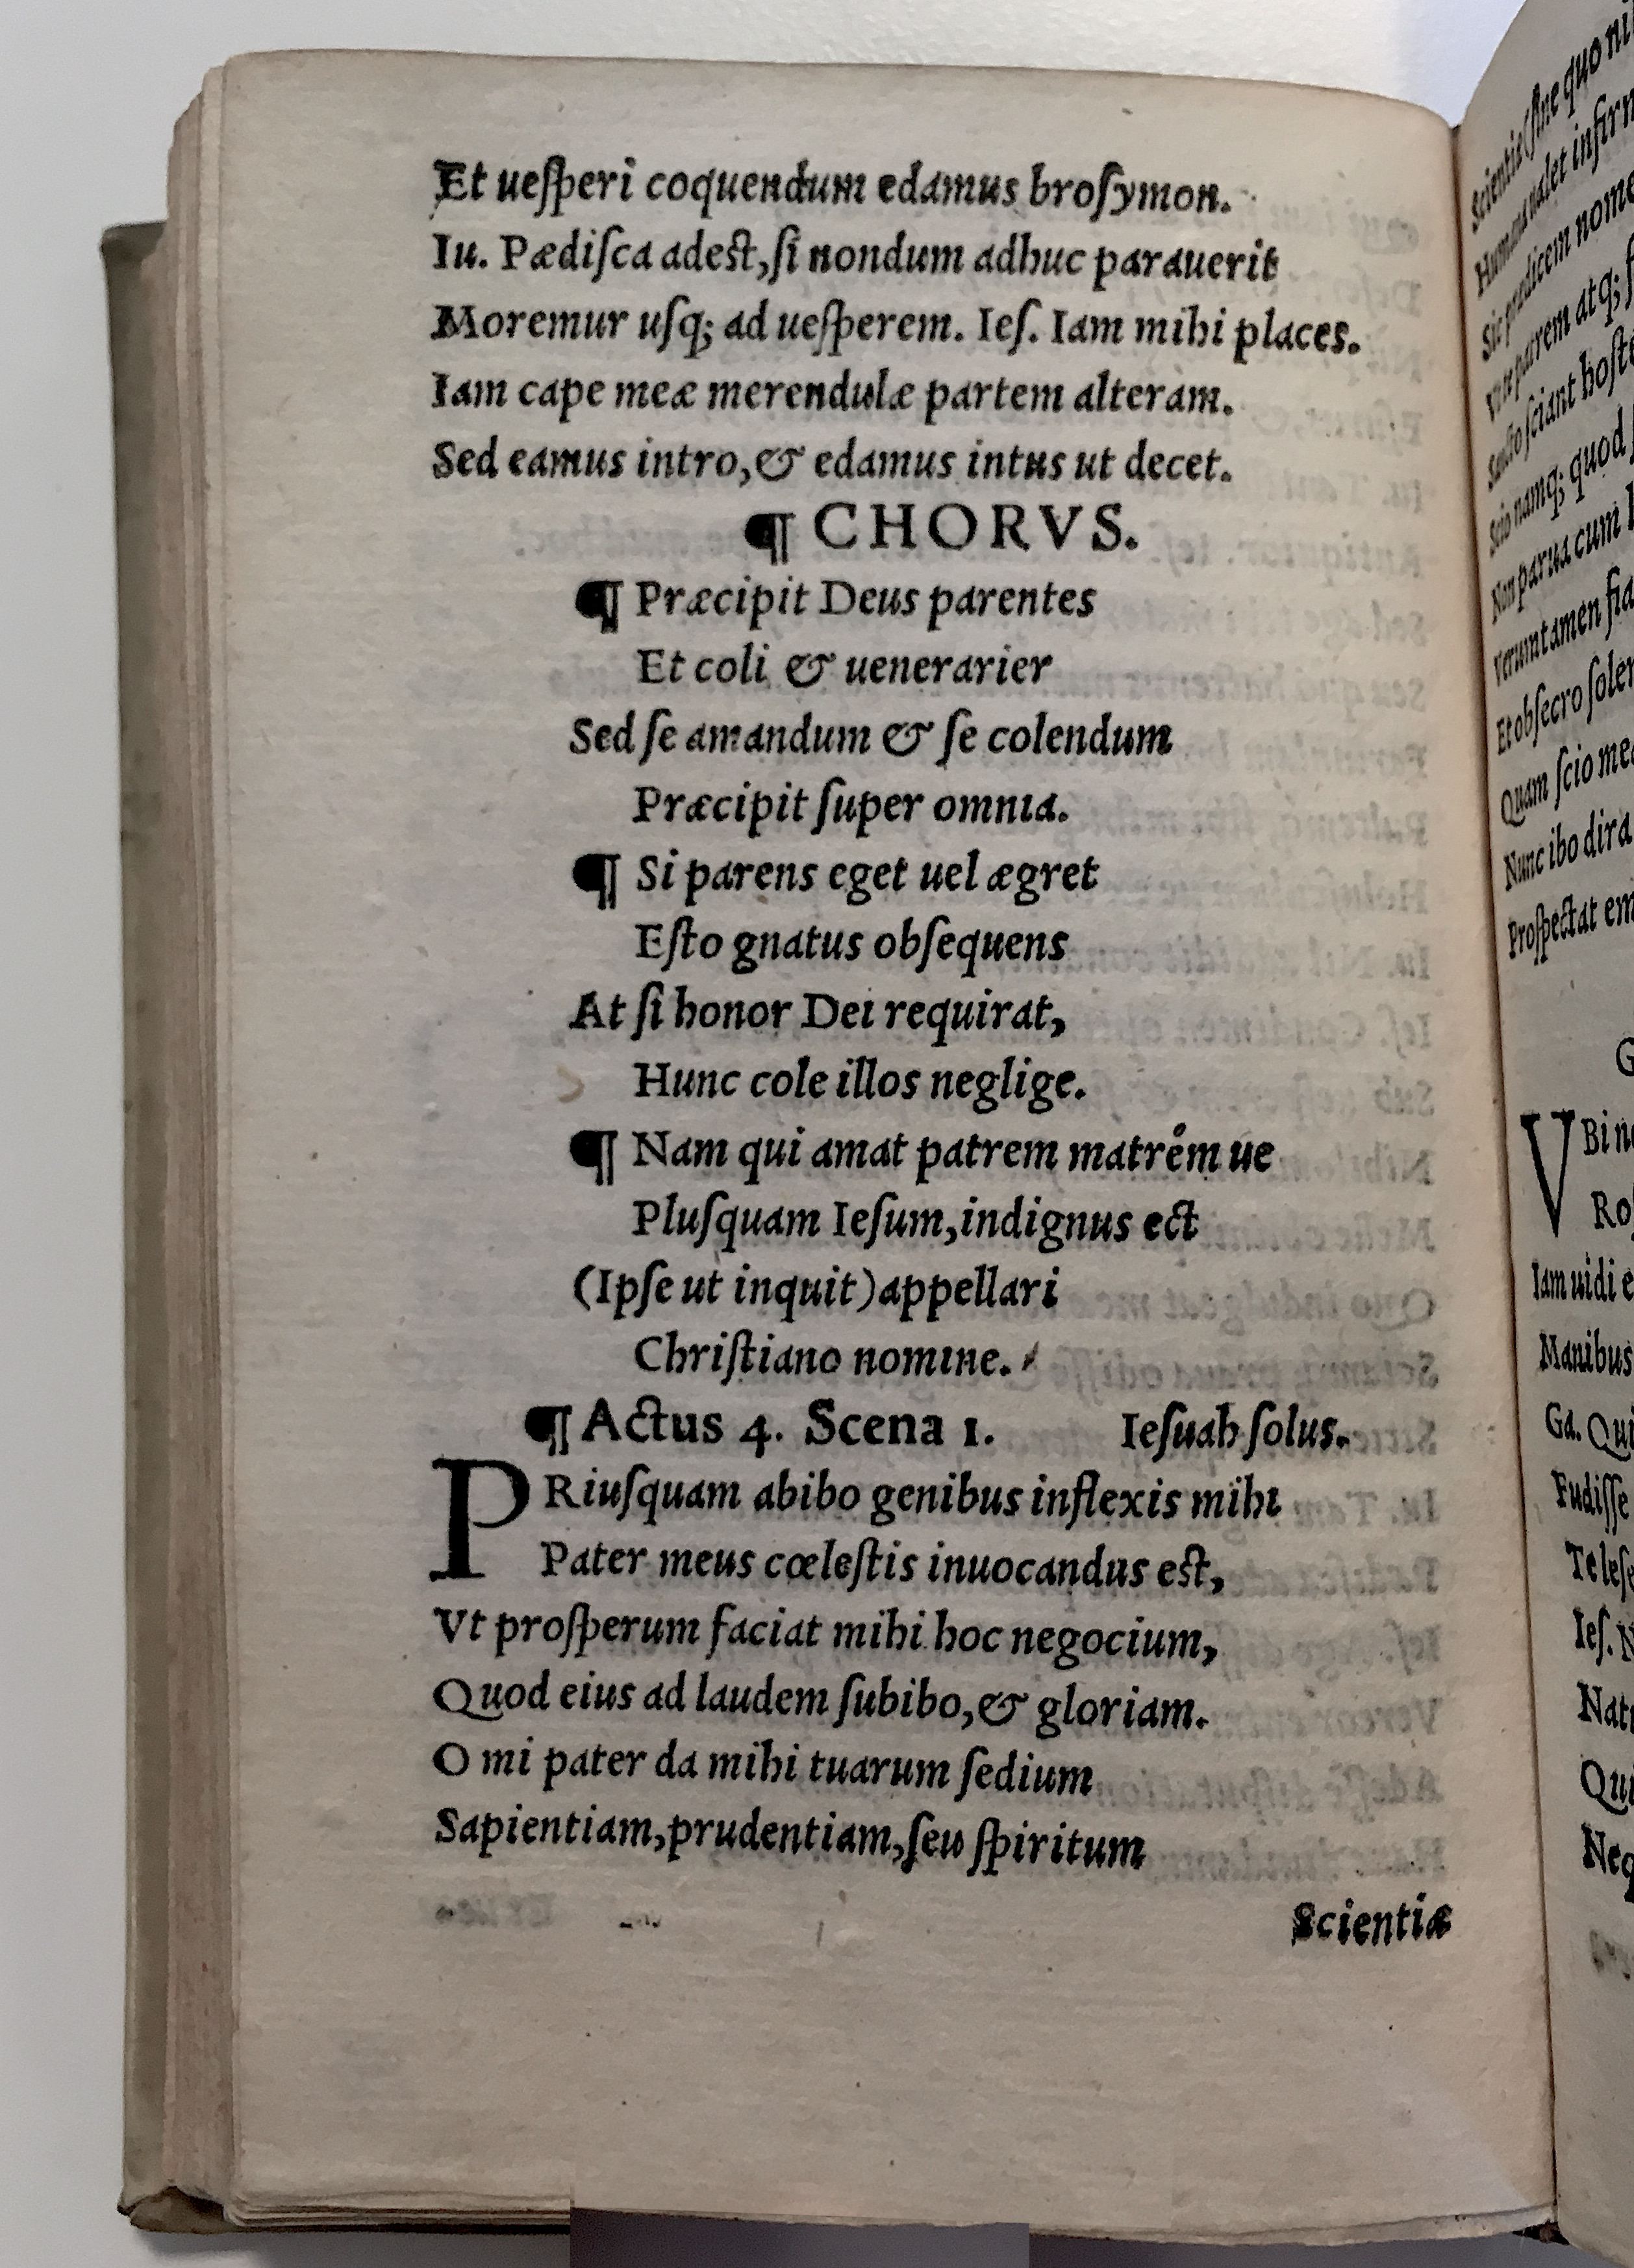 Et ueſperi coquendum edamus broſymon.
Iu. Pædiſca adest, ſi nondum adhuc parauerit
Moremur uſq; ad ueſperem. Ieſ. Iam mihi places.
Iam cape meæ merendulæ partem alteram.
Sed eamus intro, & edamus intus ut decet.
¶ CHORVS.
¶ Præcipit Deus parentes
Et coli & uenerarier
Sed ſe amandum & ſe colendum
Præcipit ſuper omnia.
¶ Si parens eget uel ægret
Eſto gnatus obſequens
At ſi honor Dei requirat,
Hunc cole illos neglige.
¶ Nam qui amat patrem matrém ue
Pluſquam Ieſum, indignus ect
(Ipſe ut inquit) appellari
Chriſtiano nomine.
¶ Actus 4. Scena 1. Ieſuah ſolus.
PRiuſquam abibo genibus inflexis mihi
Pater meus cœleſtis inuocandus est,
Vt proſperum faciat mihi hoc negocium,
Quod eius ad laudem ſubibo, & gloriam.
O mi pater da mihi tuarum ſedium
Sapientiam, prudentiam, ſeu ſpiritum
Scientiæ
Scientiæ (ſine quo
ualet
prædicem
parem atq;
ſciant
Scio namq; quod
Non parua cum
Veruntamen
Et obſecro
Quam ſcio
Nunc ibo
Proſpectat
VBi
Iam uidi
Manibus
Ga.
Fudiſſe
Ieſ.